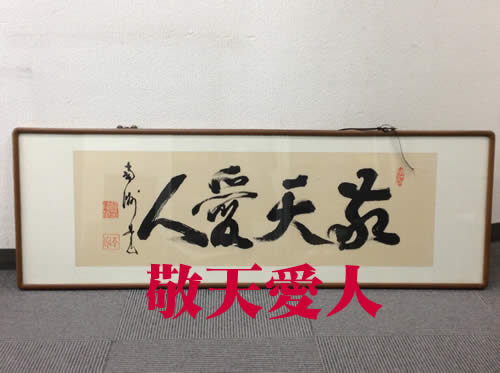 敬天愛人
南洲書
敬天愛人